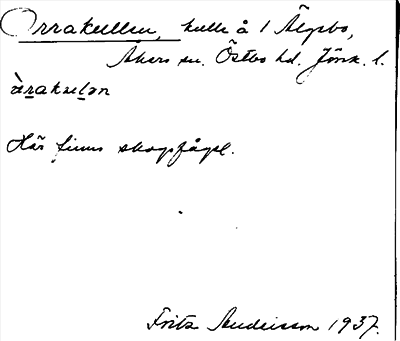 Orrakullen, kulle å 1 Älgsbo,
Åkers sn. Östbo hd. Jönk. l.
àrakulən
Här finns skogsfågel.
Fritz Andeisson 1937.